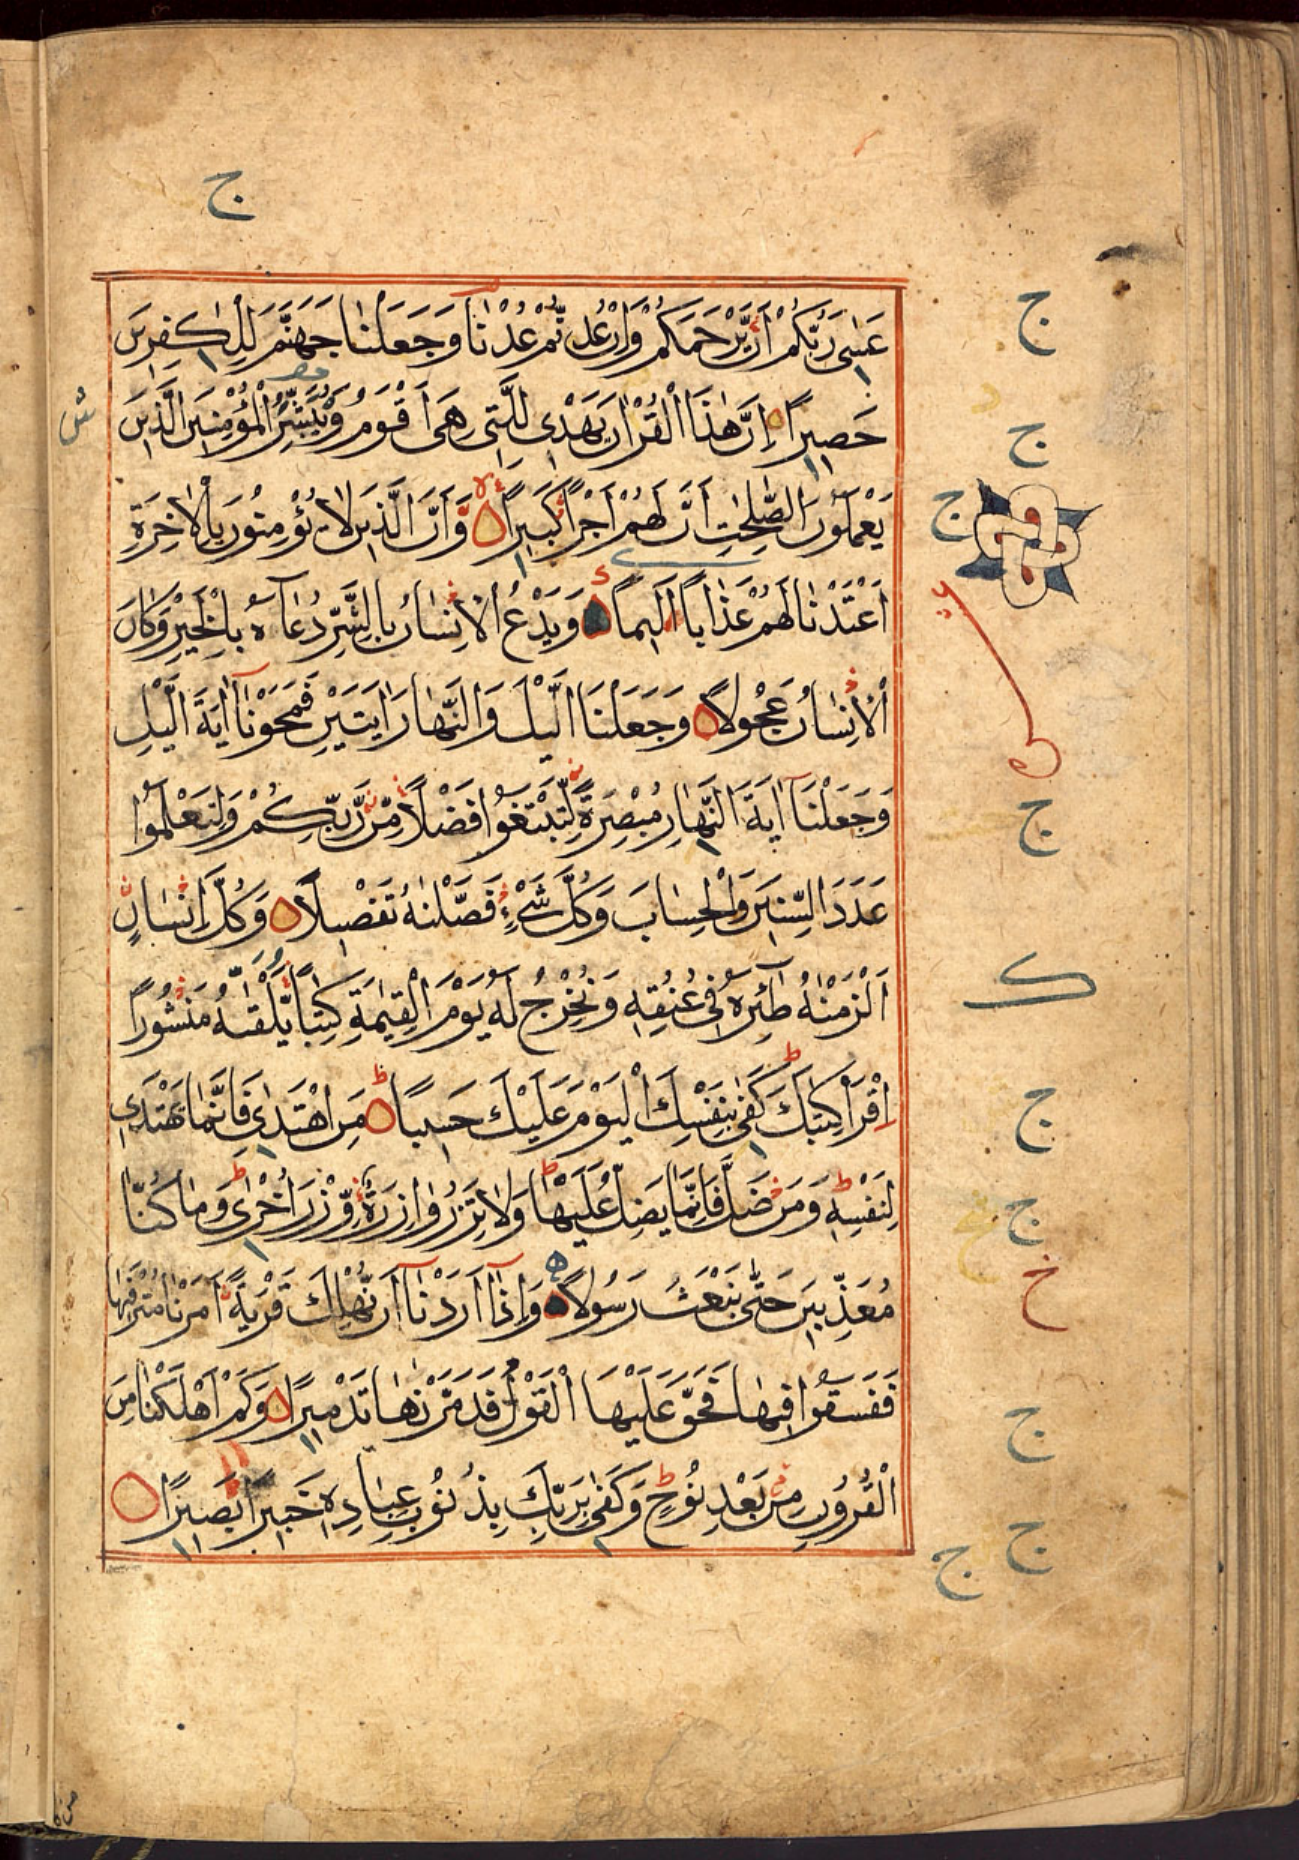 ج
عَسٰى رَبُّكُمْ اَنْ يَّرْحَمَكُمْ وَاِنْ عُدْتُّمْ عُدْنَا وَجَعَلْنَا جَهَنَّمَ لِلْكٰفِرِيْنَ
حَصِيْرًا اِنَّ هٰذَا الْقُرْاٰنَ يَهْدِىْ لِلَّتِىْ هِىَ اَقْوَمُ وَيُبَشِّرُ الْمُؤْمِنِيْنَ الَّذِيْنَ
يَعْمَلُوْنَ الصّٰلِحٰتِ اَنَّ لَهُمْ اَجْرًا كَبِيْرًا وَّاَنَّ الَّذِيْنَ لَا يُؤْمِنُوْنَ بِالْاٰخِرَةِ
اَعْتَدْنَا لَهُمْ عَذَابًا اَلِيْمًا وَيَدْعُ الْاِنْسَانُ بِالشَّرِّ دُعَآءَهٗ بِالْخَيْرِ وَكَانَ
الْاِنْسَانُ عَجُوْلًا وَجَعَلْنَا الَّيْلَ وَالنَّهَارَ اٰيَتَيْنِ فَمَحَوْنَآ اٰيَةَ الَّيْلِ
وَجَعَلْنَآ اٰيَةَ النَّهَارِ مُبْصِرَةً لِّتَبْتَغُوْا فَضْلًا مِّنْ رَّبِّكُمْ وَلِتَعْلَمُوْا
عَدَدَ السِّنِيْنَ وَالْحِسَابَ وَكُلَّ شَىْءٍ فَصَّلْنٰهُ تَفْصِيْلًا وَكُلَّ اِنْسَانٍ
اَلْزَمْنٰهُ طٰٓئِرَهٗ فِىْ عُنُقِهٖ وَنُخْرِجُ لَهٗ يَوْمَ الْقِيٰمَةِ كِتٰبًا يَّلْقٰىهُ مَنْشُوْرًا
اِقْرَاْ كِتٰبَكَ كَفٰى بِنَفْسِكَ الْيَوْمَ عَلَيْكَ حَسِيْبًا مَنِ اهْتَدٰى فَاِنَّمَا يَهْتَدِىْ
لِنَفْسِهٖ وَمَنْ ضَلَّ فَاِنَّمَا يَضِلُّ عَلَيْهَا وَلَا تَزِرُ وَازِرَةٌ وِّزْرَ اُخْرٰى وَمَا كُنَّا
مُعَذِّبِيْنَ حَتّٰى نَبْعَثَ رَسُوْلًا وَاِذَآ اَرَدْنَآ اَنْ نُّهْلِكَ قَرْيَةً اَمَرْنَا مُتْرَفِيْهَا
فَفَسَقُوْا فِيْهَا فَحَقَّ عَلَيْهَا الْقَوْلُ فَدَمَّرْنٰهَا تَدْمِيْرًا وَكَمْ اَهْلَكْنَا مِنَ
الْقُرُوْنِ مِنْ بَعْدِ نُوْحٍ وَكَفٰى بِرَبِّكَ بِذُنُوْبِ عِبَادِهٖ خَبِيْرًا بَصِيْرًا
ج
ج
ج
ج
ك
ج
ج
خ
ج
ج
ج